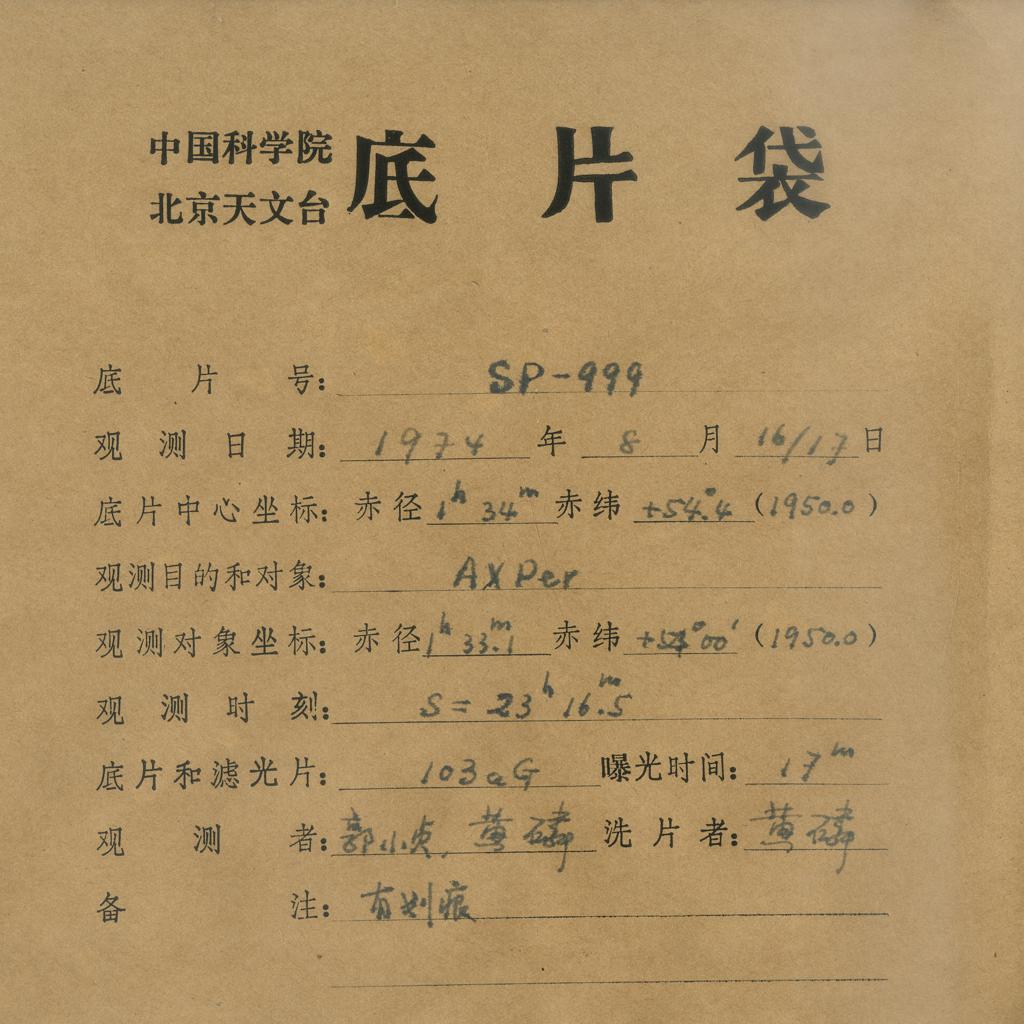 中国科学院
北京天文台
底片袋
底片号：SP-999
观测日期：1974年8月16/17日
底片中心坐标：赤径1ʰ 34ᵐ赤纬+54°.4（1950.0）
观测目的和对象：AX Per
观测对象坐标：赤径1ʰ 33ᵐ.1赤纬+54°00′（1950.0）
观测时刻：S=23ʰ16ᵐ.5
底片和滤光片：103aG曝光时间：17ᵐ
观测者：郭小贞，黄磷洗片者：黄磷
备注：有划痕